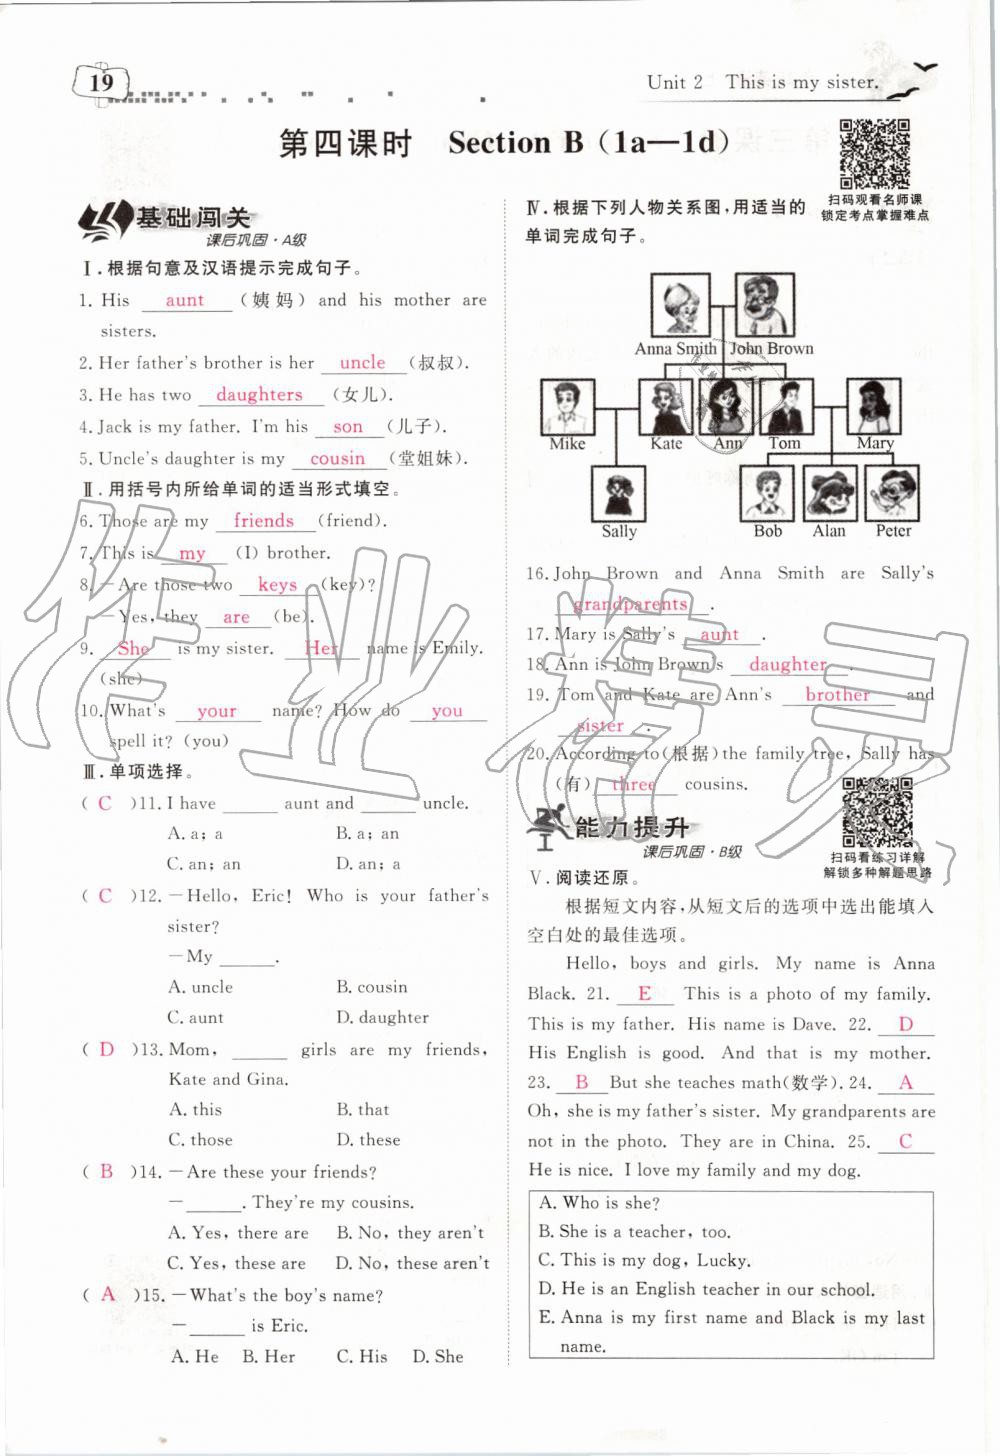 19
Unit 2 This is my sister.
第四课时 Section B (1a—1d)
扫码观看名师课
锁定考点掌握难点
基础闯关
课后巩固·A级
Ⅰ.根据句意及汉语提示完成句子。
1. His aunt (姨妈) and his mother are
sisters.
2. Her father's brother is her uncle (叔叔).
3. He has two daughters (女儿).
4. Jack is my father. I'm his son (儿子).
5. Uncle's daughter is my cousin (堂姐妹).
Ⅱ.用括号内所给单词的适当形式填空。
6. Those are my friends (friend).
7. This is my (I) brother.
8. —Are those two keys (key)?
—Yes, they are (be).
9. She is my sister. Her name is Emily.
(she)
10. What's your name? How do you
spell it? (you)
Ⅲ.单项选择。
( C )11. I have ______ aunt and ______ uncle.
A. a; a B. a; an
C. an; an D. an; a
( C )12. —Hello, Eric! Who is your father's
sister?
—My ______.
A. uncle B. cousin
C. aunt D. daughter
( D )13. Mom, ______ girls are my friends,
Kate and Gina.
A. this B. that
C. those D. these
( B )14. —Are these your friends?
—______. They're my cousins.
A. Yes, there are B. No, they aren't
C. Yes, these are D. No, these aren't
( A )15. —What's the boy's name?
—______ is Eric.
A. He B. Her C. His D. She
Ⅳ.根据下列人物关系图,用适当的
单词完成句子。
Anna Smith John Brown
Mike Kate Ann Tom Mary
Sally Bob Alan Peter
16. John Brown and Anna Smith are Sally's
grandparents .
17. Mary is Sally's aunt .
18. Ann is John Brown's daughter .
19. Tom and Kate are Ann's brother and
sister .
20. According to(根据) the family tree, Sally has
(有) three cousins.
能力提升
课后巩固·B级
扫码看练习详解
解锁多种解题思路
Ⅴ.阅读还原。
根据短文内容,从短文后的选项中选出能填入
空白处的最佳选项。
Hello, boys and girls. My name is Anna
Black. 21. E This is a photo of my family.
This is my father. His name is Dave. 22. D
His English is good. And that is my mother.
23. B But she teaches math(数学). 24. A
Oh, she is my father's sister. My grandparents are
not in the photo. They are in China. 25. C
He is nice. I love my family and my dog.
A. Who is she?
B. She is a teacher, too.
C. This is my dog, Lucky.
D. He is an English teacher in our school.
E. Anna is my first name and Black is my last
name.
作业精灵